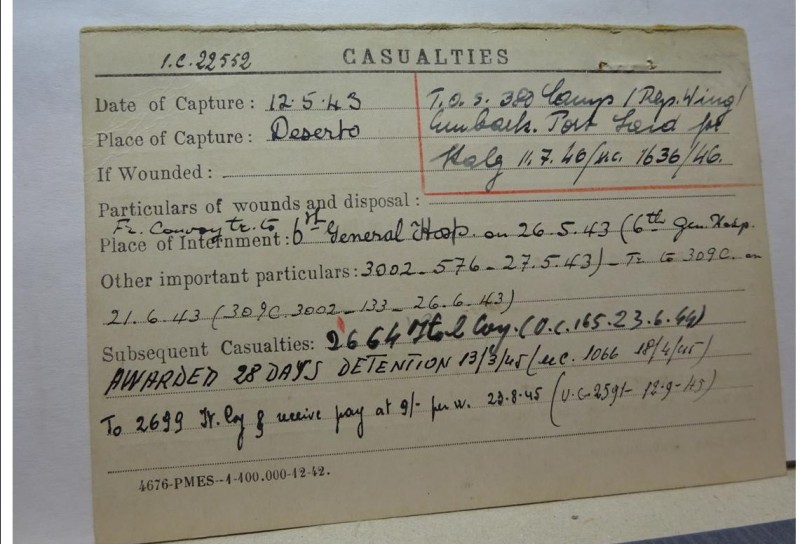 I.C. 22552
CASUALTIES
Date of Capture: 12.5.43
T.O.S. 380 Camp / Rep. Wing /
Place of Capture: Deserto
Embark. Port Said for
Italy 11.7.46/uc. 1636/46.
If Wounded:
Particulars of wounds and disposal:
Fr. Convoy tr. to
Place of Internment: 6th General Hosp. on 26.5.43 (6th Gen. Hosp.
Other important particulars: 3002-576-27.5.43) - Tr to 309 C. on
21.6.43 (309C. 3002-133-26.6.43)
Subsequent Casualties: 2664 Ital Coy. (U.C. 165.23.6.44)
AWARDED 28 DAYS DETENTION 13/3/45 (uc. 1066 18/4/45)
To 2699 It. Coy & receive pay at 9/- per w. 23.8.45 (U.C. 2591- 12-9-45)
4676-PMES--1-100.000-12-42.